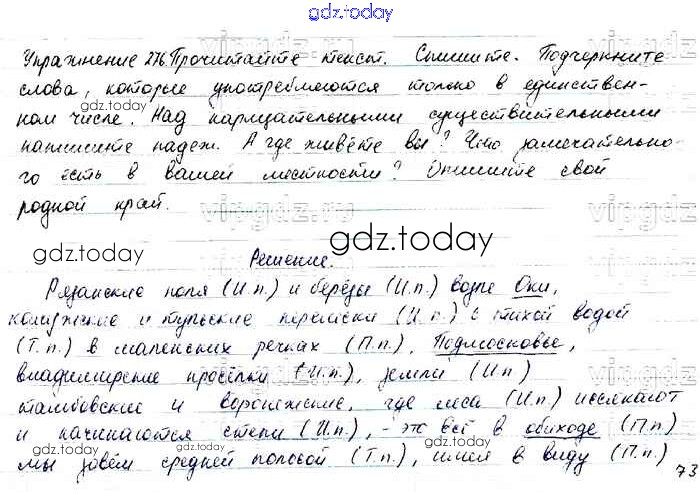 gdz.today
Упражнение 276. Прочитайте текст. Спишите. Подчеркните
слова, которые употребляются только в единствен-
gdz.today
gdz.today
ном числе. Над нарицательными существительными
напишите падеж. А где живёте вы? Что замечательно-
го есть в вашей местности? Опишите свой
родной край.
vipgdz.ru
vipgdz.ru
gdz.today
gdz.today
Решение.
Рязанские поля (И.п.) и берёзы (И.п.) возле Оки,
калужские и тульские перелески (И.п.) с тихой водой
(Т.п.) в маленьких речках (П.п.), Подмосковье,
владимирские просёлки (И.п.), земли (И.п)
тамбовские и воронежские, где леса (И.п) иссякают
и начинаются степи (И.п.), - это всё в обиходе (П.п)
мы зовём средней полосой (Т.п.), имея в виду (П.п.)
vipgdz.ru
gdz.today
gdz.today
73